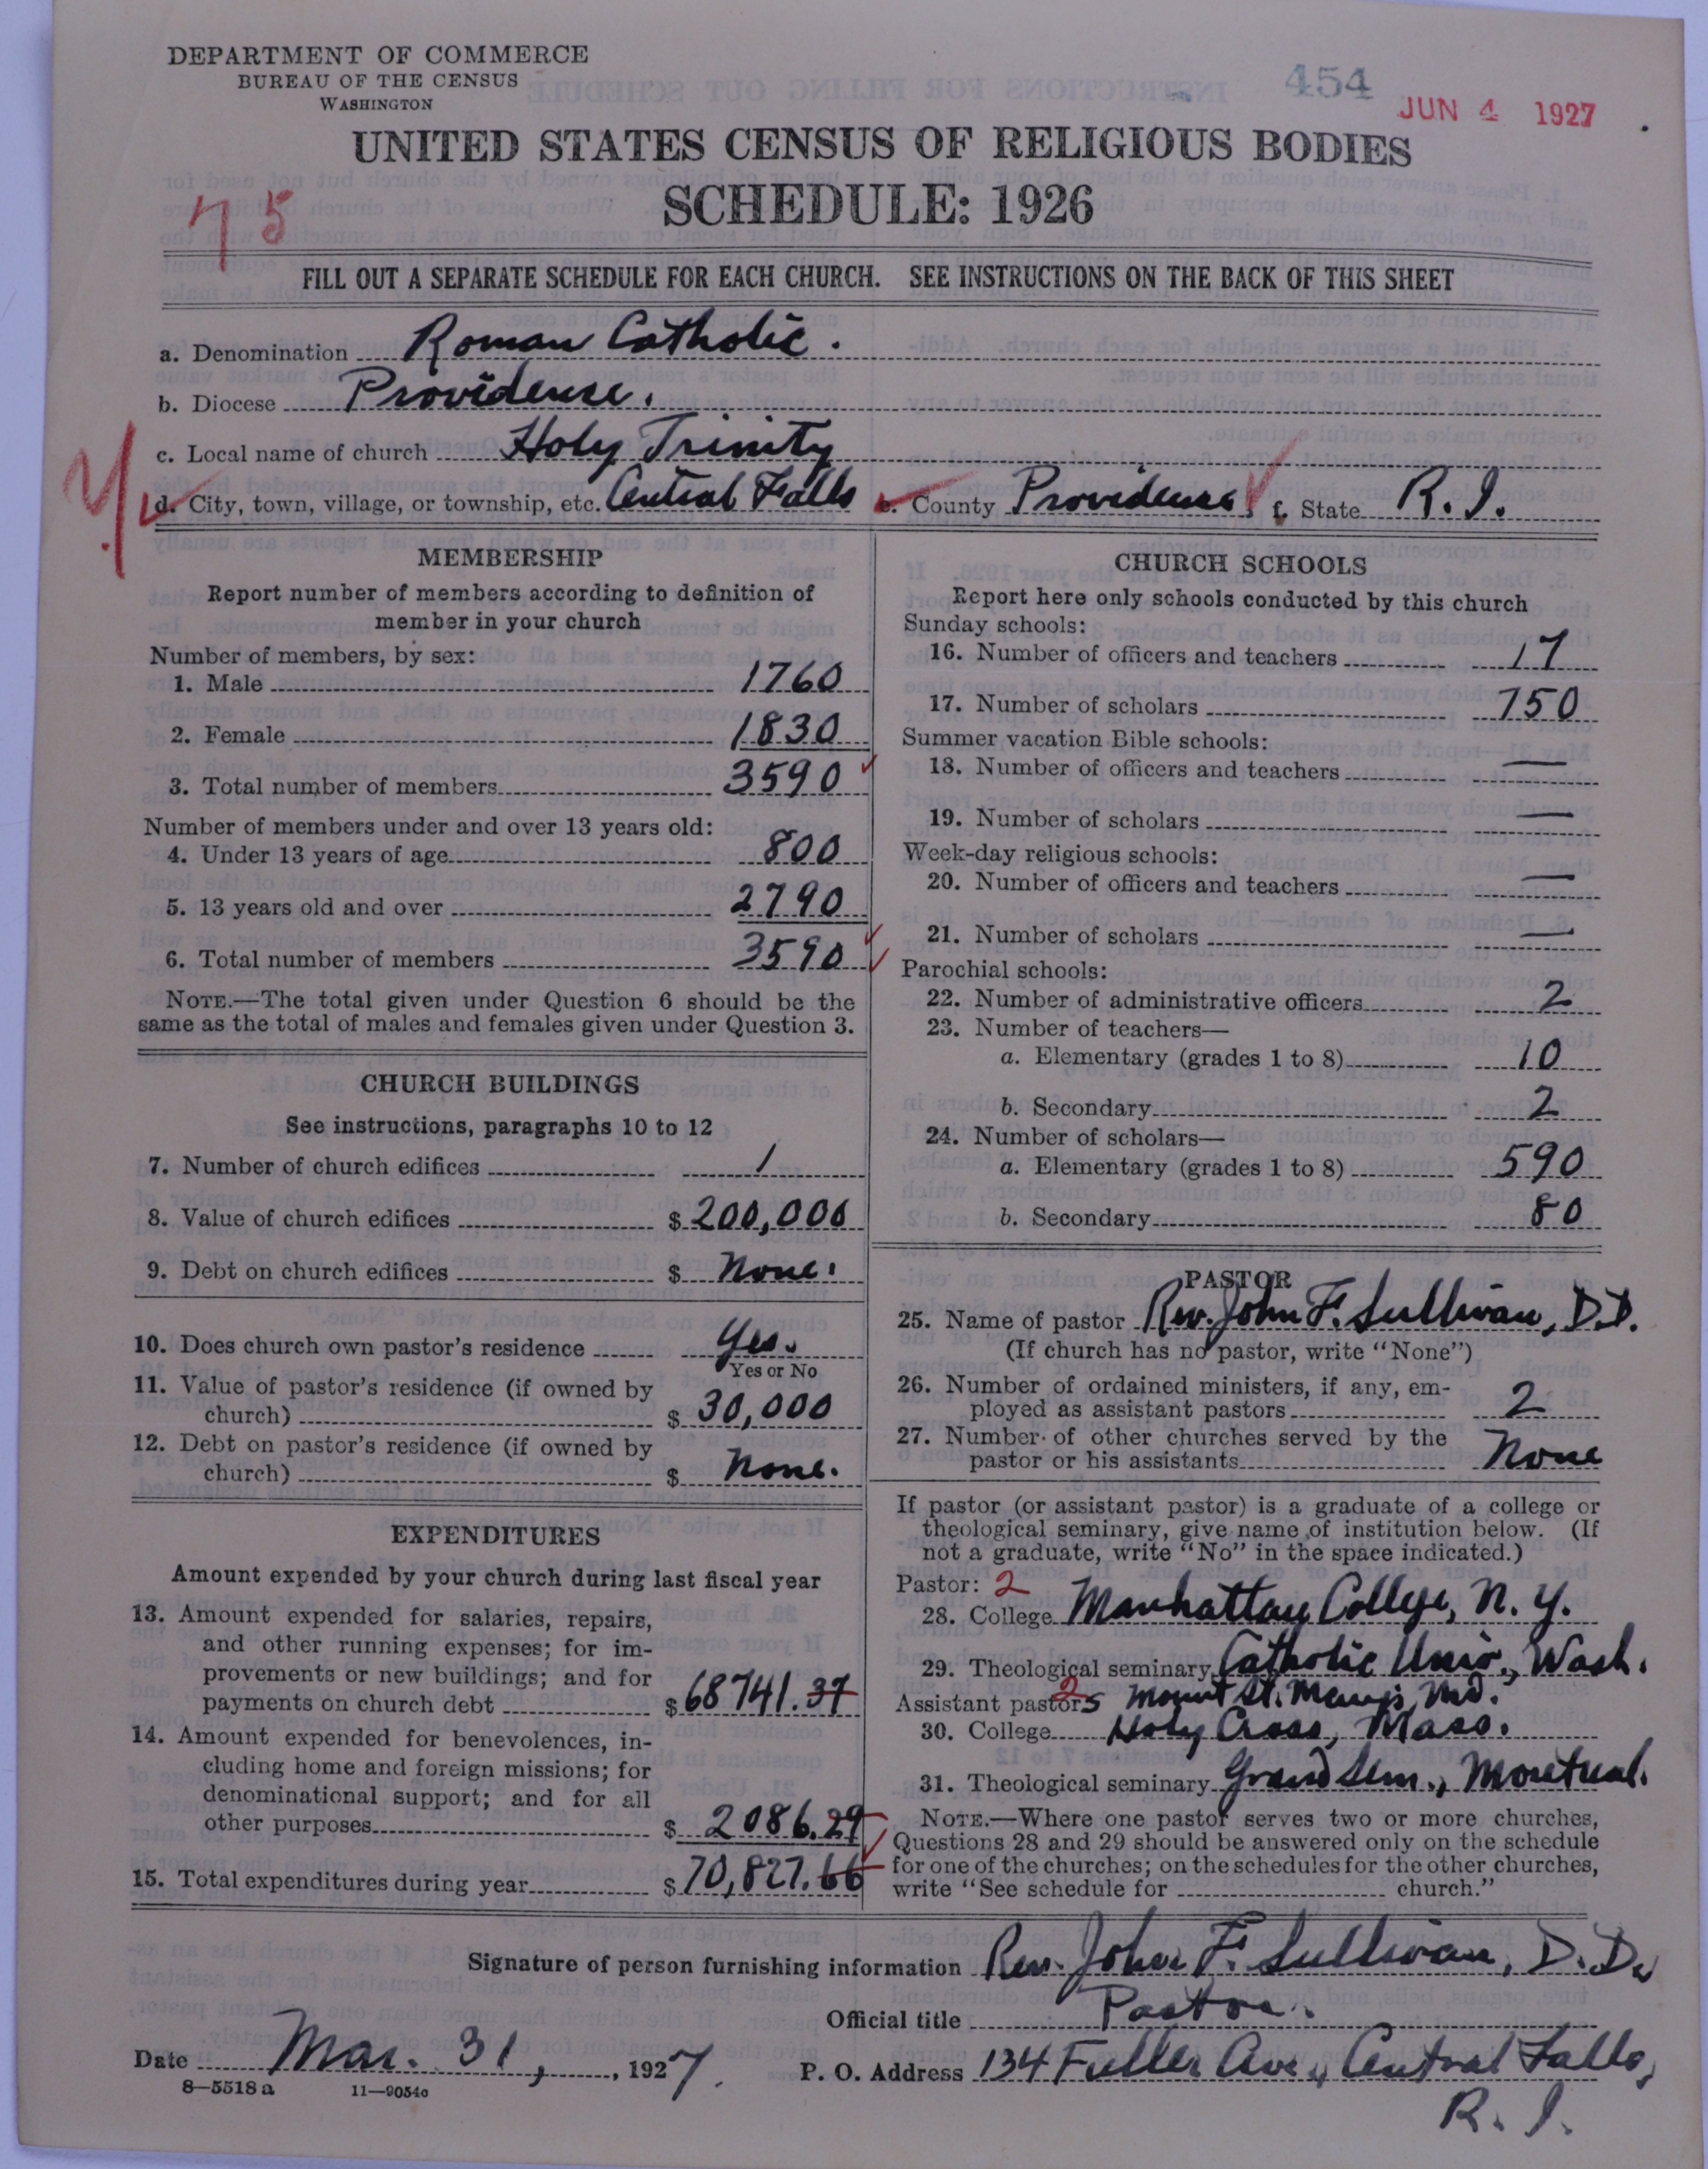 DEPARTMENT OF COMMERCE
BUREAU OF THE CENSUS
WASHINGTON
454
JUN 4 1927
UNITED STATES CENSUS OF RELIGIOUS BODIES
SCHEDULE: 1926
75
FILL OUT A SEPARATE SCHEDULE FOR EACH CHURCH. SEE INSTRUCTIONS ON THE BACK OF THIS SHEET
a. Denomination Roman Catholic.
b. Diocese Providence.
c. Local name of church Holy Trinity
d. City, town, village, or township, etc. Central Falls e. County Providence f. State R. I.
MEMBERSHIP
Report number of members according to definition of
member in your church
Number of members, by sex:
1. Male 1760
2. Female 1830
3. Total number of members 3590
Number of members under and over 13 years old:
4. Under 13 years of age 800
5. 13 years old and over 2790
6. Total number of members 3590
NOTE.—The total given under Question 6 should be the
same as the total of males and females given under Question 3.
CHURCH BUILDINGS
See instructions, paragraphs 10 to 12
7. Number of church edifices 1
8. Value of church edifices $ 200,000
9. Debt on church edifices $ None.
10. Does church own pastor's residence Yes.
Yes or No
11. Value of pastor's residence (if owned by
church) $ 30,000
12. Debt on pastor's residence (if owned by
church) $ None.
EXPENDITURES
Amount expended by your church during last fiscal year
13. Amount expended for salaries, repairs,
and other running expenses; for im-
provements or new buildings; and for
payments on church debt $ 68741.37
14. Amount expended for benevolences, in-
cluding home and foreign missions; for
denominational support; and for all
other purposes $ 2086.29
15. Total expenditures during year $ 70,827.66
CHURCH SCHOOLS
Report here only schools conducted by this church
Sunday schools:
16. Number of officers and teachers 17
17. Number of scholars 750
Summer vacation Bible schools:
18. Number of officers and teachers —
19. Number of scholars —
Week-day religious schools:
20. Number of officers and teachers —
21. Number of scholars —
Parochial schools:
22. Number of administrative officers 2
23. Number of teachers—
a. Elementary (grades 1 to 8) 10
b. Secondary 2
24. Number of scholars—
a. Elementary (grades 1 to 8) 590
b. Secondary 80
PASTOR
25. Name of pastor Rev. John F. Sullivan, D.D.
(If church has no pastor, write "None")
26. Number of ordained ministers, if any, em-
ployed as assistant pastors 2
27. Number of other churches served by the
pastor or his assistants None
If pastor (or assistant pastor) is a graduate of a college or
theological seminary, give name of institution below. (If
not a graduate, write "No" in the space indicated.)
Pastor: 2
28. College Manhattan College, N. Y.
29. Theological seminary Catholic Univ., Wash.
Assistant pastors 2 Mount St. Mary's, Md.
30. College Holy Cross, Mass.
31. Theological seminary Grand Sem., Montreal.
NOTE.—Where one pastor serves two or more churches,
Questions 28 and 29 should be answered only on the schedule
for one of the churches; on the schedules for the other churches,
write "See schedule for church."
Signature of person furnishing information Rev. John F. Sullivan, D.D.
Official title Pastor.
Date Mar. 31, 1927. P. O. Address 134 Fuller Ave., Central Falls,
R. I.
8—5518 a 11—9054c